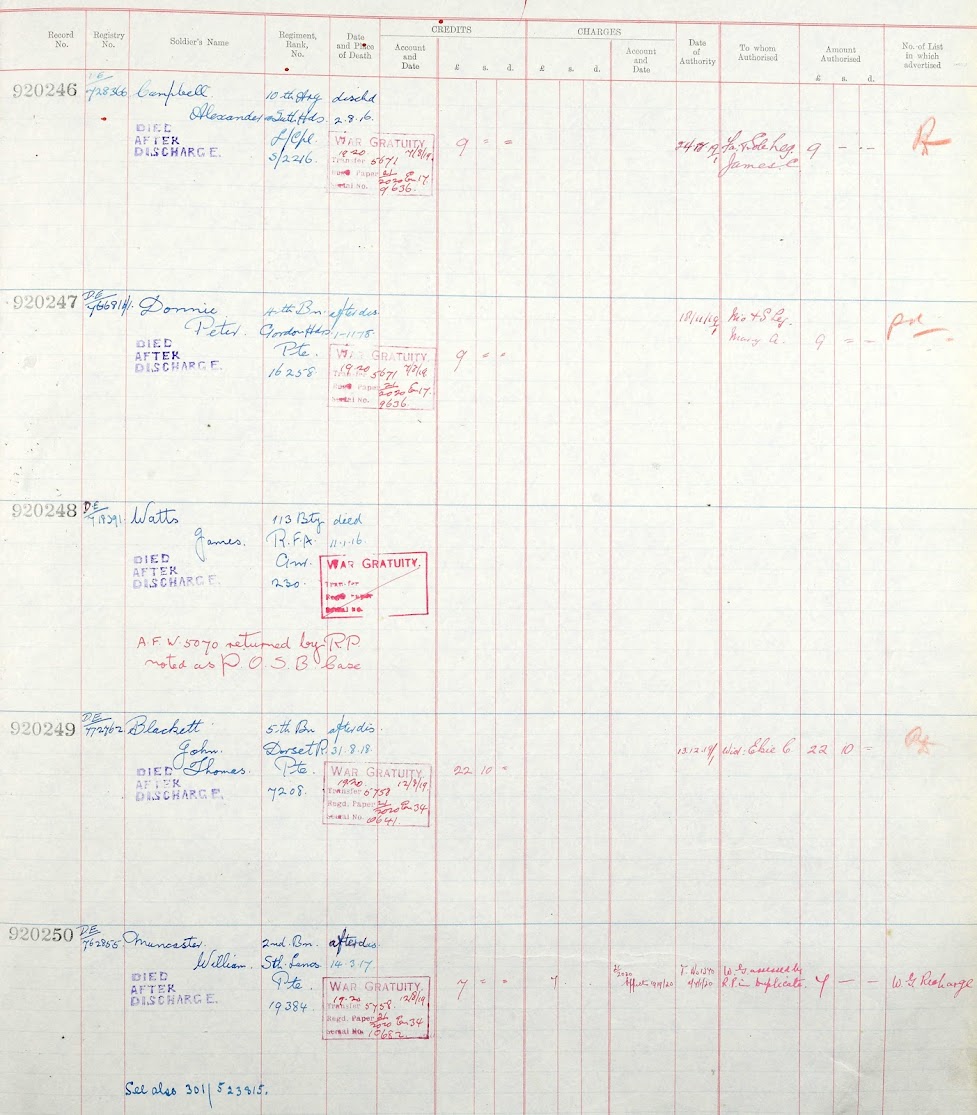 CREDITS CHARGES
Record No. Registry No. Soldier's Name Regiment, Rank, No. Date and Place of Death Account and Date £ s. d. £ s. d. Account and Date Date of Authority To whom Authorised Amount Authorised £ s. d. No. of List in which advertised
920246 Campbell 10th Arg dischd
Alexander Suth Hds. 2.8.16.
DIED AFTER DISCHARGE. L/Cpl.
S/2216.
WAR GRATUITY
19.20
Transfer 5671 7/8/19
Regd. Paper 21/2020 17.
Serial No. 9636.
9 = =
Fa. & Sole Leg. 9 - --
James C.
920247 DE Donnie 4th Bn. after dis.
Peter. Gordon Hds
DIED AFTER DISCHARGE. Pte.
16258.
WAR GRATUITY
19.20
Transfer 5671 7/8/19
Regd. Paper 21/2020 17.
Serial No. 9636.
9 = =
Mo & S Leg.
Mary A. 9 = -
920248 DE Watts 113 Bty died
James. R.F.A. 11.1.16.
DIED AFTER DISCHARGE. Gnr.
230.
WAR GRATUITY.
Transfer
Regd. Paper
Serial No.
A.F.W. 5070 returned by R.P.
noted as P.O.S.B. Case
920249 DE Blackett 5th Bn after dis.
John. Dorset R. 31.8.18.
Thomas. Pte.
DIED AFTER DISCHARGE. 7208.
WAR GRATUITY
19.20 12/8/19
Transfer 5758
Regd. Paper 21/2020 34
Serial No. 10641.
22 10 =
13.12.19 Wid. Elsie C. 22 10 =
920250 DE 762855 Muncaster. 2nd. Bn. after dis.
William. Sth Lancs 14.3.17
DIED AFTER DISCHARGE. Pte.
19384.
WAR GRATUITY
19.20 12/8/19
Transfer 5758.
Regd. Paper 21/2020 34
Serial No. 10682.
7 = = 7 . .
W.G. assessed by
R.P. in duplicate. 7 — — W.G. Recharge
See also 301/523815.